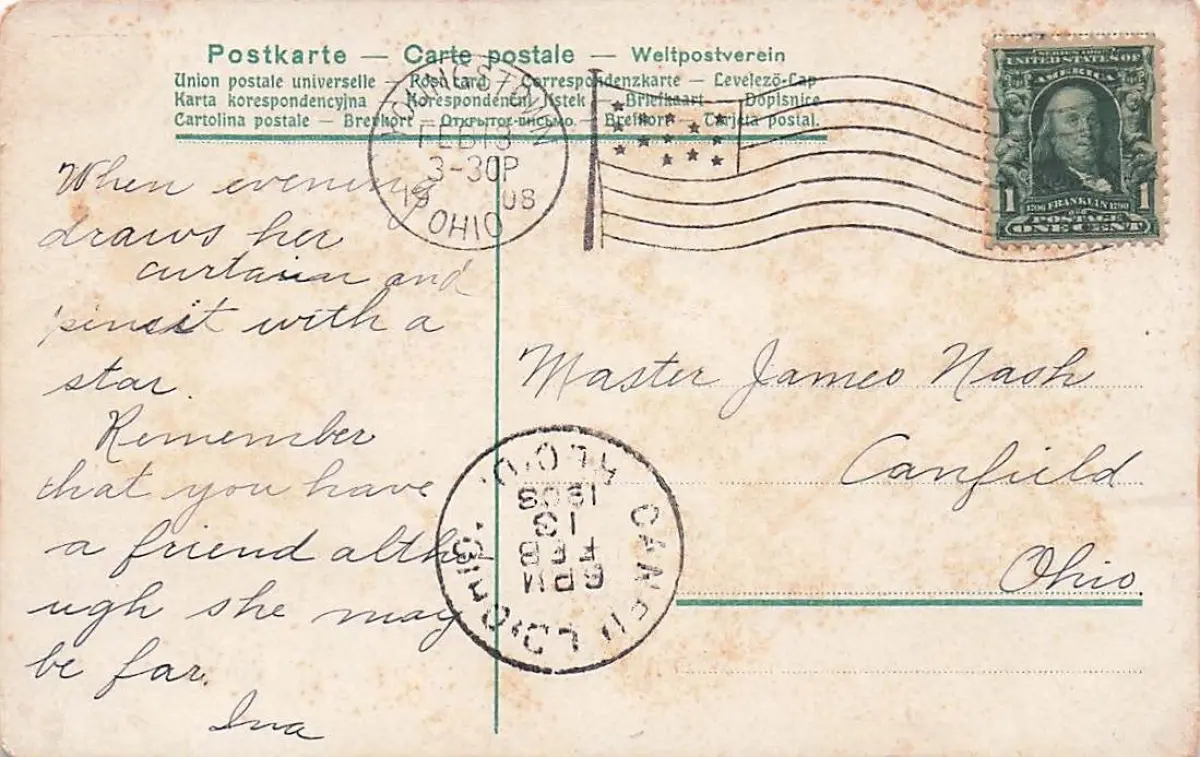 Postkarte — Carte postale — Weltpostverein
Union postale universelle — Post card — Correspondenzkarte — Levelező-Lap
Karta korespondencyjna — Korespondenční lístek — Briefkaart — Dopisnice
Cartolina postale — Brevkort — Открытое письмо. — Brefkort — Tarjeta postal.
YOUNGSTOWN
FEB 13
3-30P
1908
OHIO
UNITED STATES OF
AMERICA
1 1
1706 FRANKLIN 1790
POSTAGE
ONE CENT
When evening
draws her
curtain and
pins it with a
star.
Remember
that you have
a friend altho
ugh she may
be far.
Ina
Master James Nash
Canfield
Ohio
CANFIELD, OHIO.
REC'D.
6 PM
FEB
13
1908